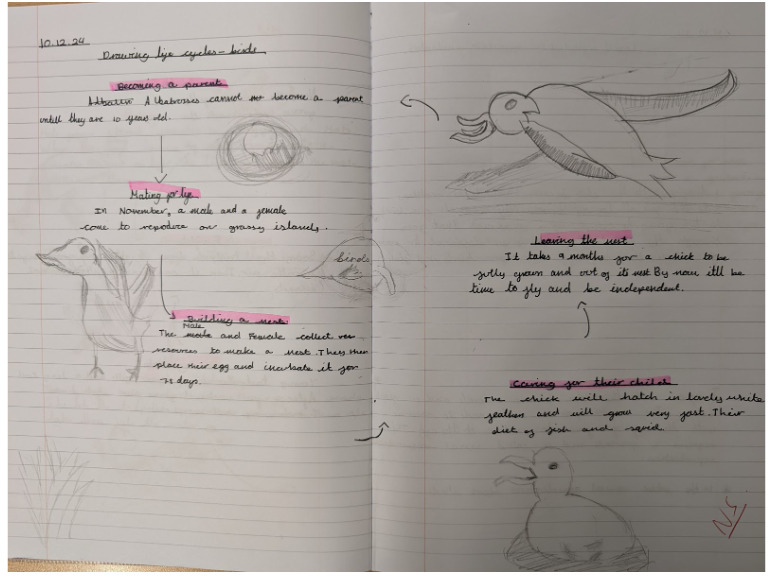 10.12.24
Drawing life cycles - birds
Becoming a parent
Albatrosses cannot become a parent
untill they are 10 years old.
Mating for life
In November, a male and a female
come to reproduce on grassy islands.
birds
Building a nest
Male
The and Female collect
resources to make a nest. They then
place their egg and incubate it for
days.
Leaving the nest
It takes 9 months for a chick to be
fully grown and out of its nest By now itll be
time to fly and be independent.
Caring for their child
The chick will hatch in lovely white
feathers and will grow very fast. Their
diet of fish and squid.
NS